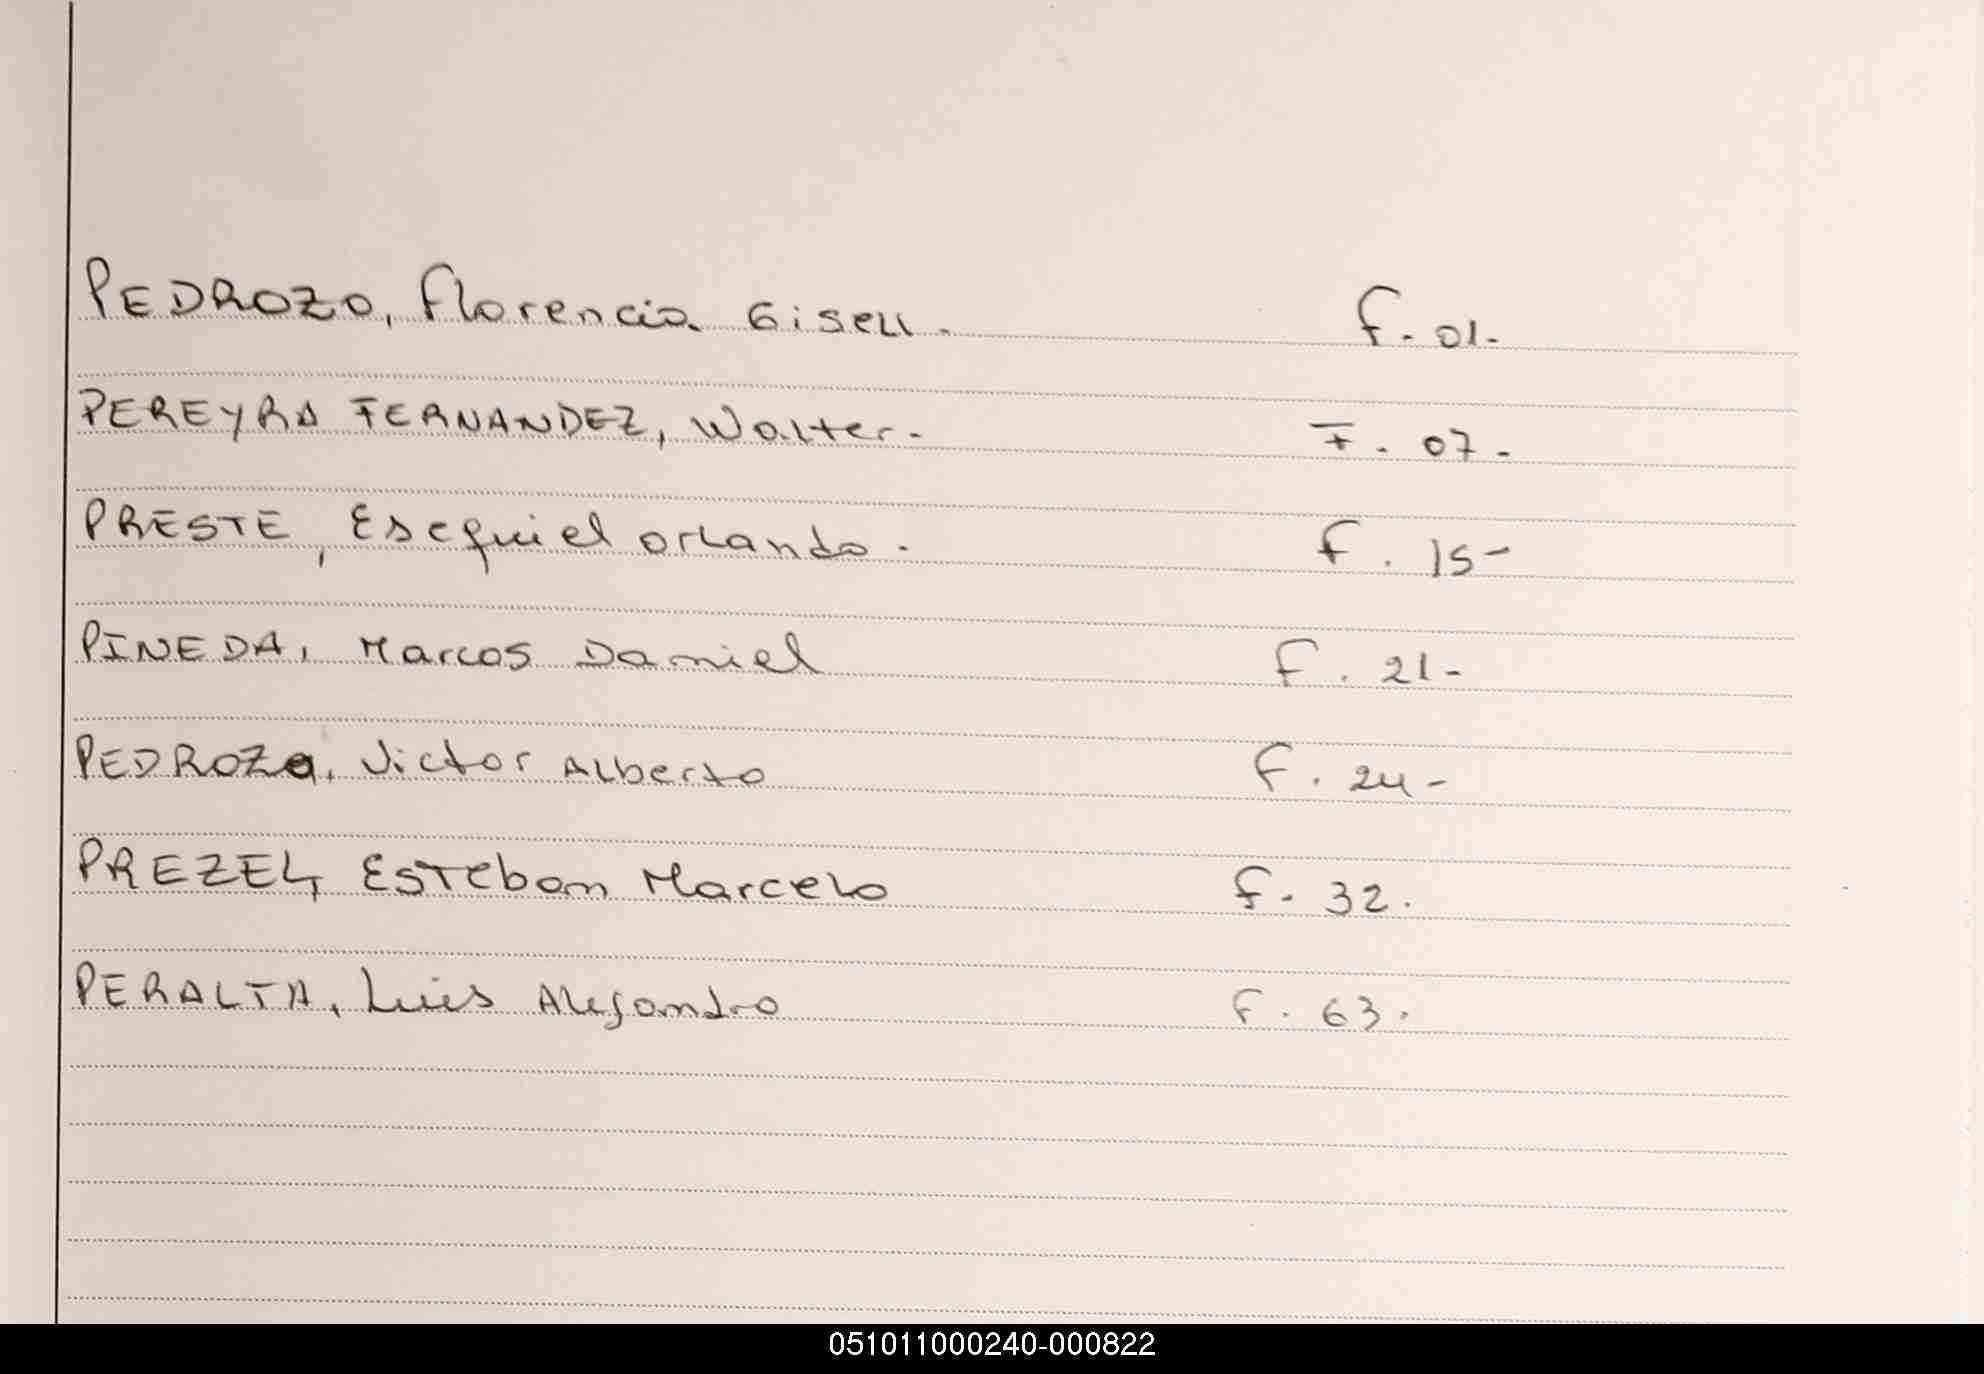 PEDROZO, Florencia Gisell. F. 01-
PEREYRA FERNANDEZ, Walter. F. 07-
PRESTE, Esequiel Orlando. F. 15-
PINEDA, Marcos Daniel F. 21-
PEDROZa, Victor Alberto F. 24-
PREZEL, Esteban Marcelo F. 32.
PERALTA, Luis Alejandro F. 63.
051011000240-000822